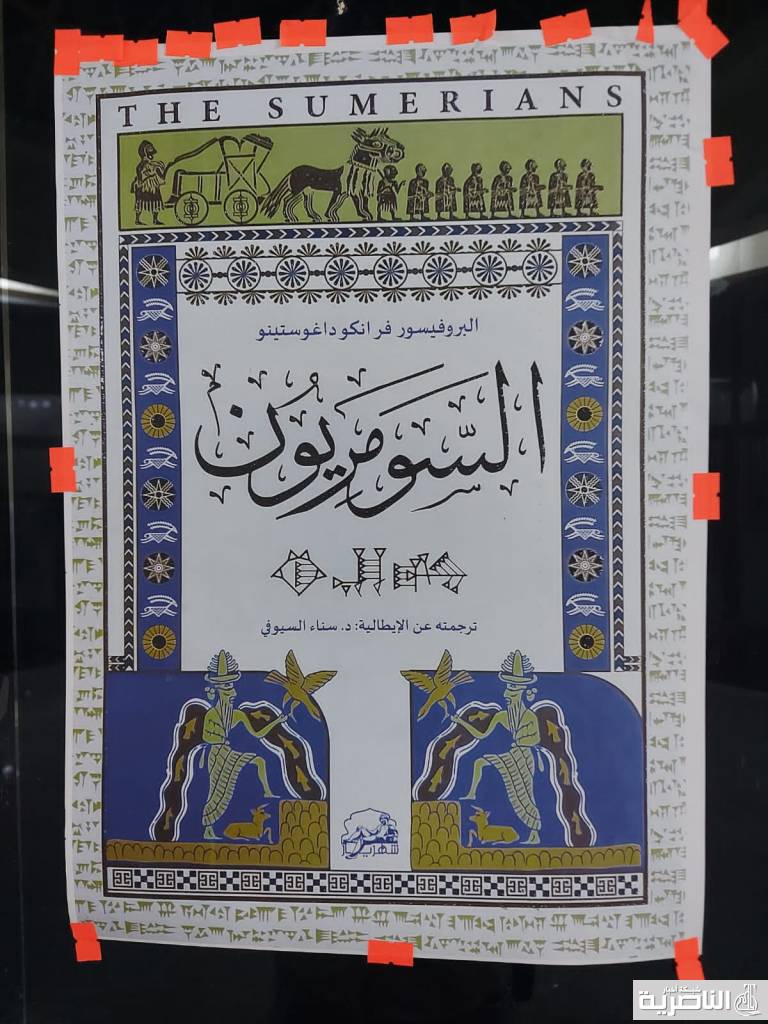 THE SUMERIANS
البروفيسور فرانكو داغوستينو
السّومَريُون
ترجمته عن الإيطالية: د. سناء السيوفي
شهريار
شبكة أخبار
الناصرية